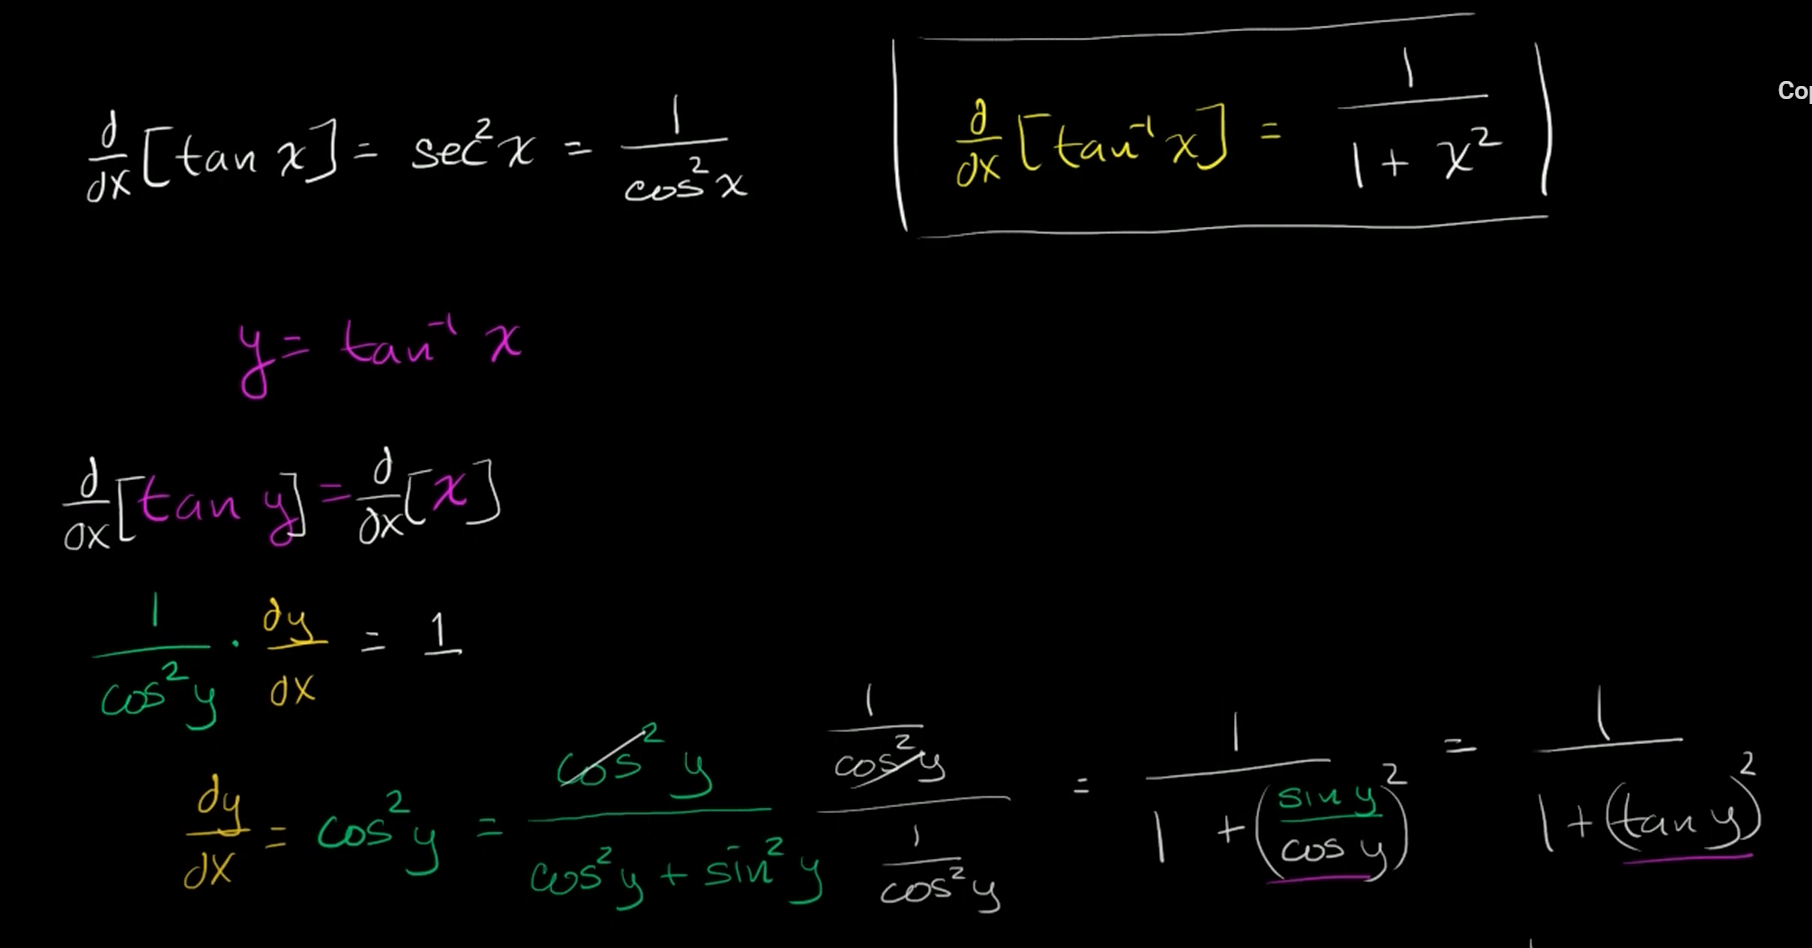 d/dx [tan x] = sec²x = 1/cos²x
d/dx [tan⁻¹ x] = 1/(1 + x²)
Cop
y = tan⁻¹ x
d/dx [tan y] = d/dx [x]
1/cos²y · dy/dx = 1
dy/dx = cos²y = cos²y/(cos²y + sin²y) (1/cos²y)/(1/cos²y) = 1/(1 + (sin y/cos y)²) = 1/(1 + (tan y)²)